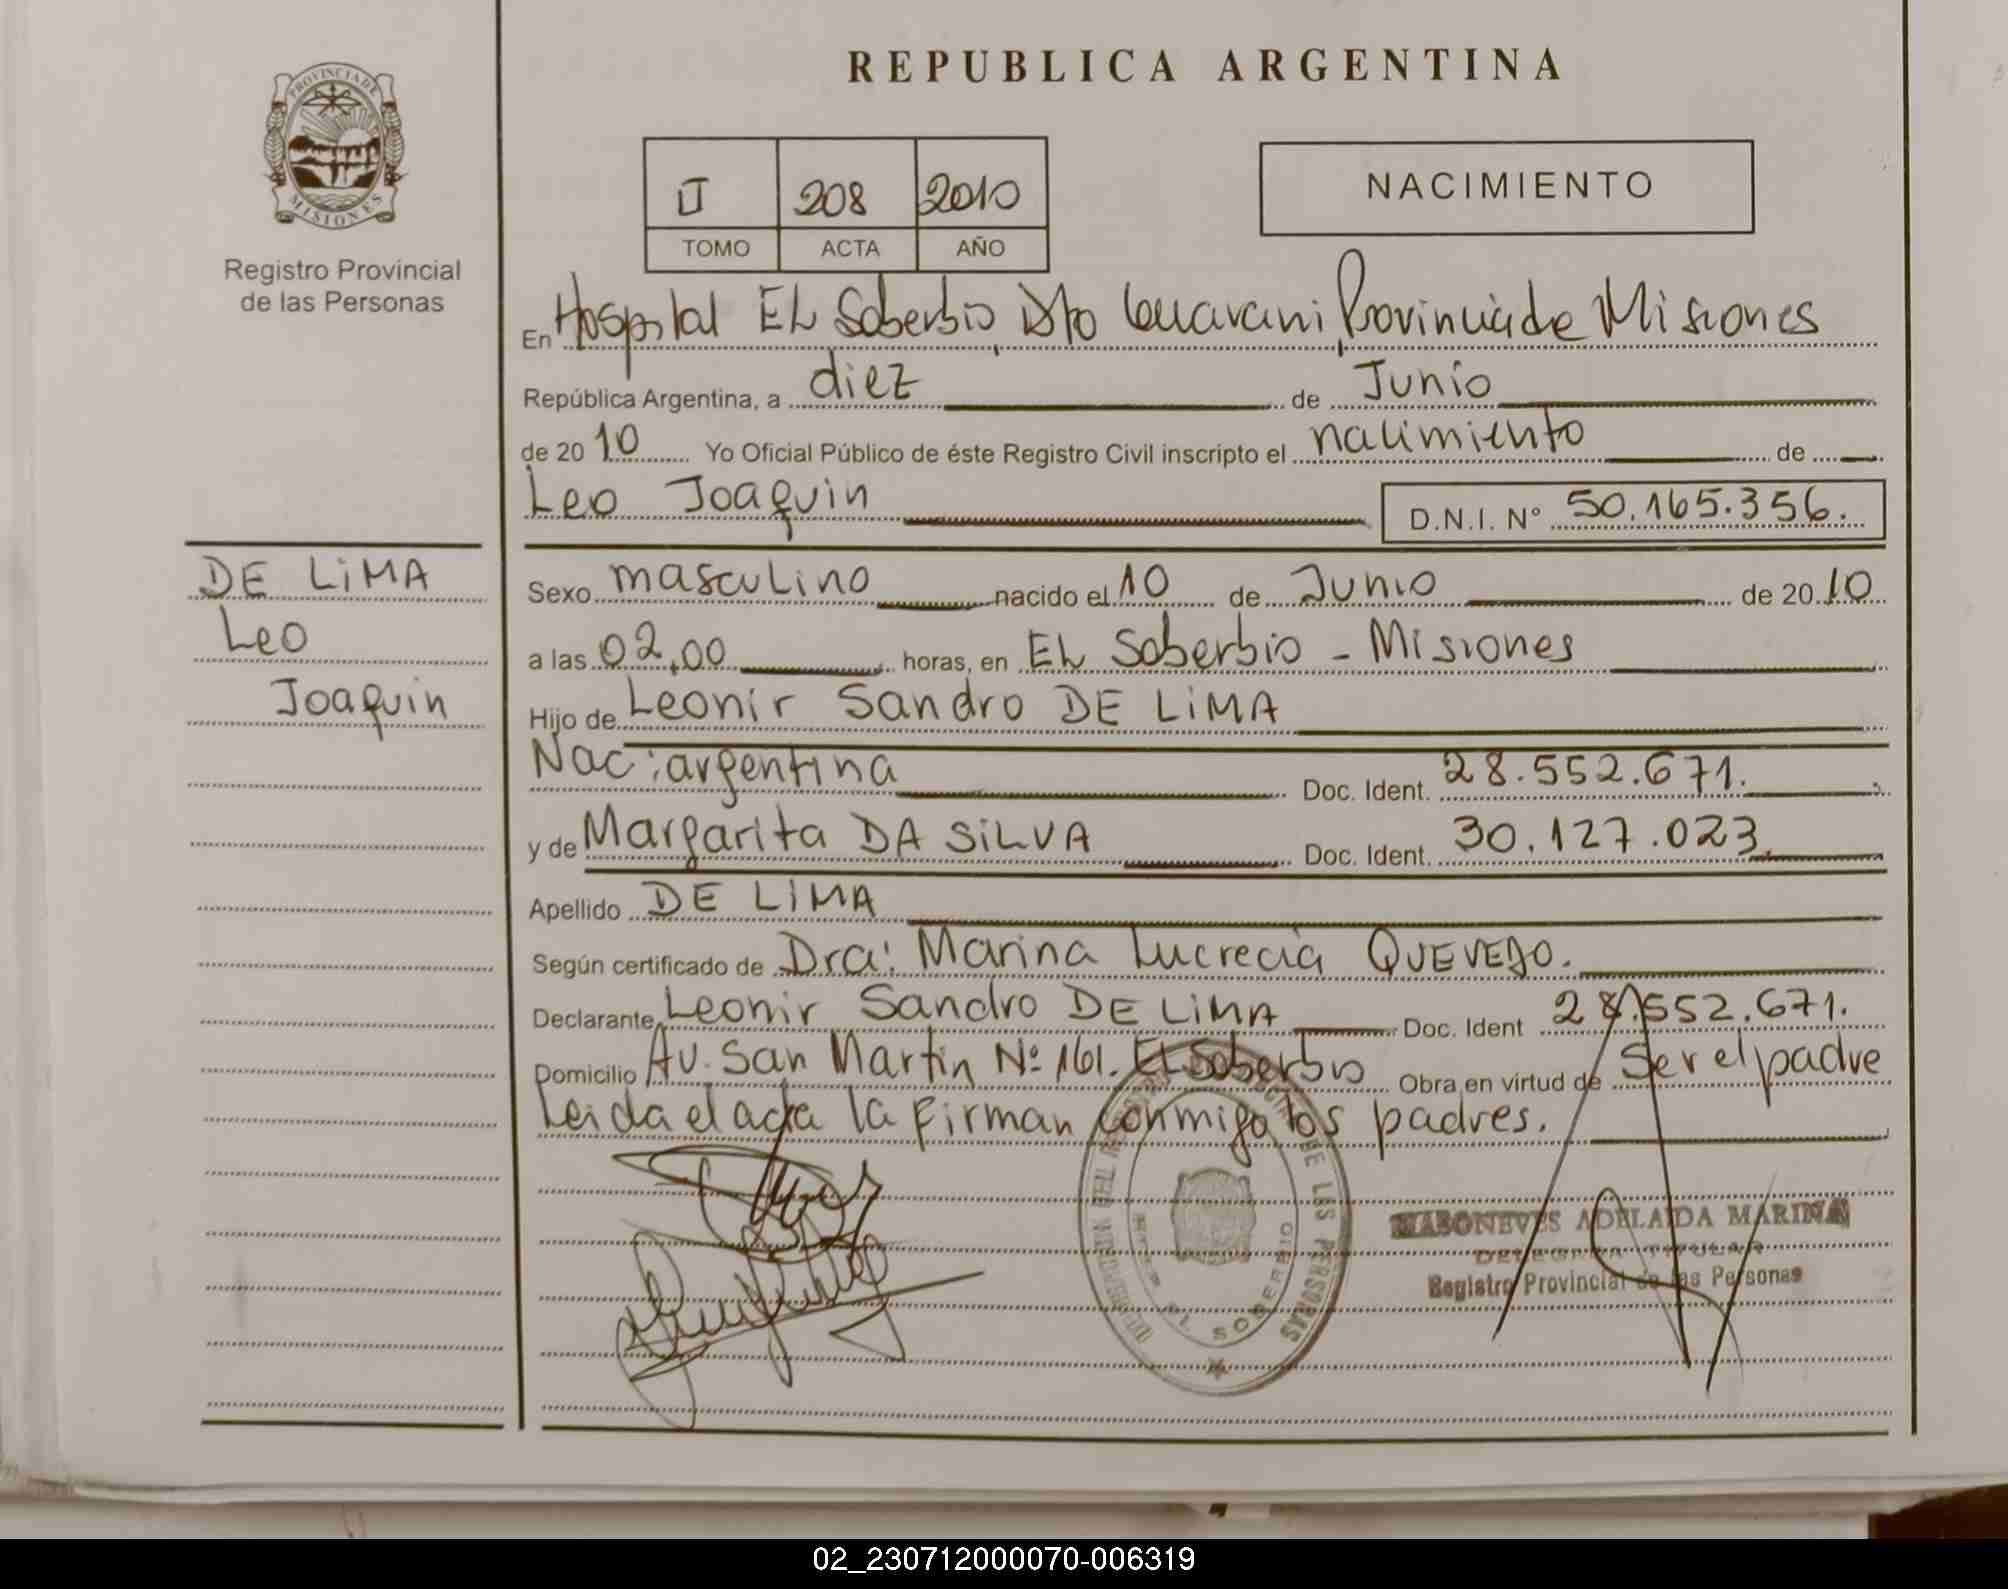 REPUBLICA ARGENTINA
PROVINCIA DE MISIONES
Registro Provincial
de las Personas
II 208 2010
TOMO ACTA AÑO
NACIMIENTO
En Hospital EL Soberbio, Dto Guarani, Provincia de Misiones
República Argentina, a diez de Junio
de 2010 Yo Oficial Público de éste Registro Civil inscripto el nacimiento de
Leo Joaquin D.N.I. N° 50.165.356.
DE LiMA
Leo
Joaquin
Sexo masculino nacido el 10 de Junio de 2010
a las 02,00 horas, en EL Soberbio - Misiones
Hijo de Leonir Sandro DE LiMA
Nac: argentina Doc. Ident. 28.552.671.
y de Margarita DA SiLVA Doc. Ident. 30.127.023.
Apellido DE LiMA
Según certificado de Dra: Marina Lucrecia QUEVEDO.
Declarante Leonir Sandro DE LiMA Doc. Ident 28.552.671.
Domicilio Av. San Martin Nº 161. EL Soberbio Obra en virtud de Ser el padre
Leida el acta la firman conmigo los padres.
DE LAS PERSONAS
EL SOBERBIO
ADELAIDA MARINA
DELEGADA TITULAR
Registro Provincial de las Personas
02_230712000070-006319